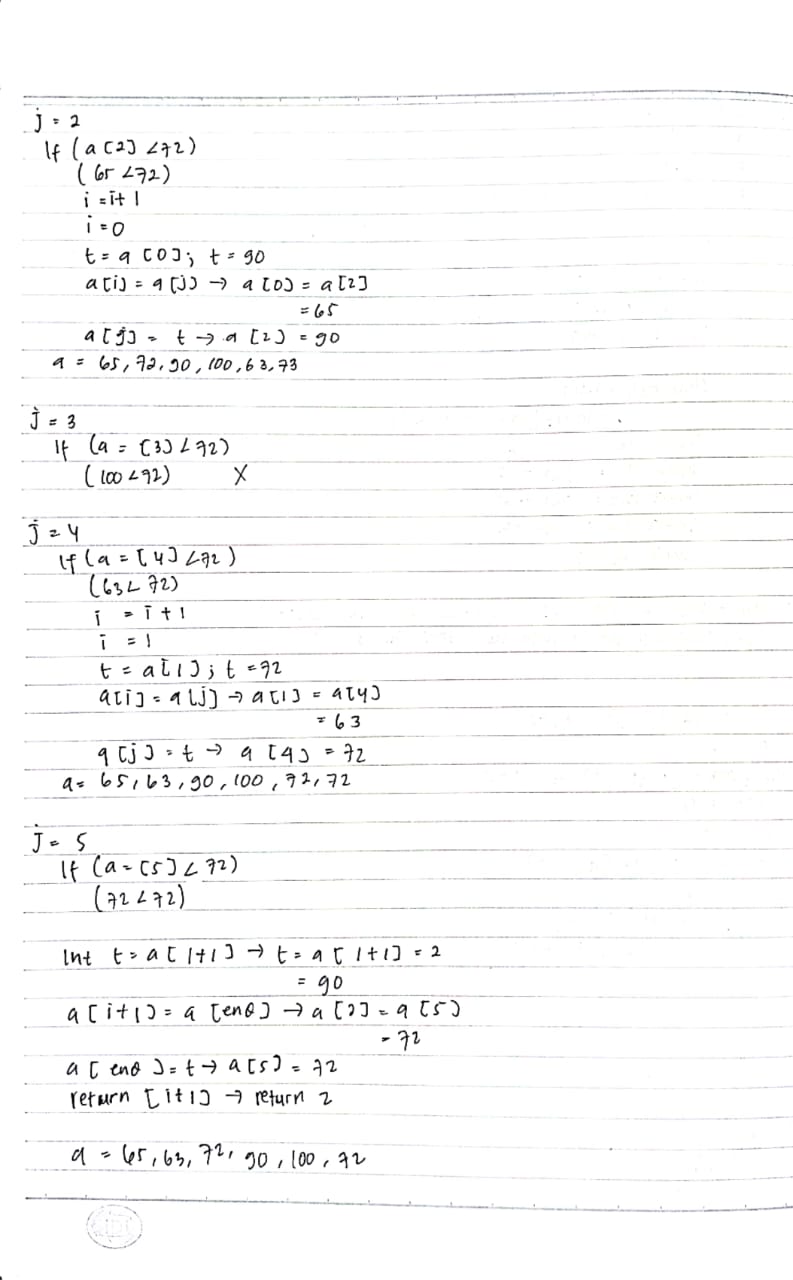 j = 2
If (a[2] < 72)
(65 < 72)
i = i + 1
i = 0
t = a [0]; t = 90
a[i] = a[j] → a[0] = a[2]
= 65
a[j] = t → a [2] = 90
a = 65, 72, 90, 100, 63, 73
j = 3
If (a = [3] < 72)
(100 < 72) X
j = 4
If (a = [4] < 72)
(63 < 72)
i = i + 1
i = 1
t = a[1]; t = 72
a[i] = a[j] → a[1] = a[4]
= 63
a[j] = t → a [4] = 72
a = 65, 63, 90, 100, 72, 72
J = 5
If (a = [5] < 72)
(72 < 72)
Int t = a [ 1+1 ] → t = a [ 1+1] = 2
= 90
a [i+1] = a [end] → a [2] = a [5]
= 72
a [ end ] = t → a[5] = 72
return [i+1] → return 2
a = 65, 63, 72, 90, 100, 72